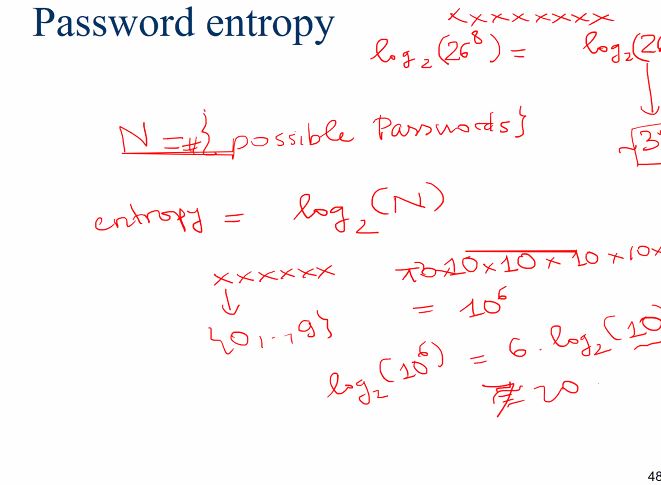 Password entropy
xxxxxxxx
log₂(26⁸) = log₂(26
N = #{possible Passwords}
~3
entropy = log₂(N)
xxxxxx
10x10x10x10x10x
↓
= 10⁶
{0,..,9}
log₂(10⁶) = 6. log₂(10)
20
48